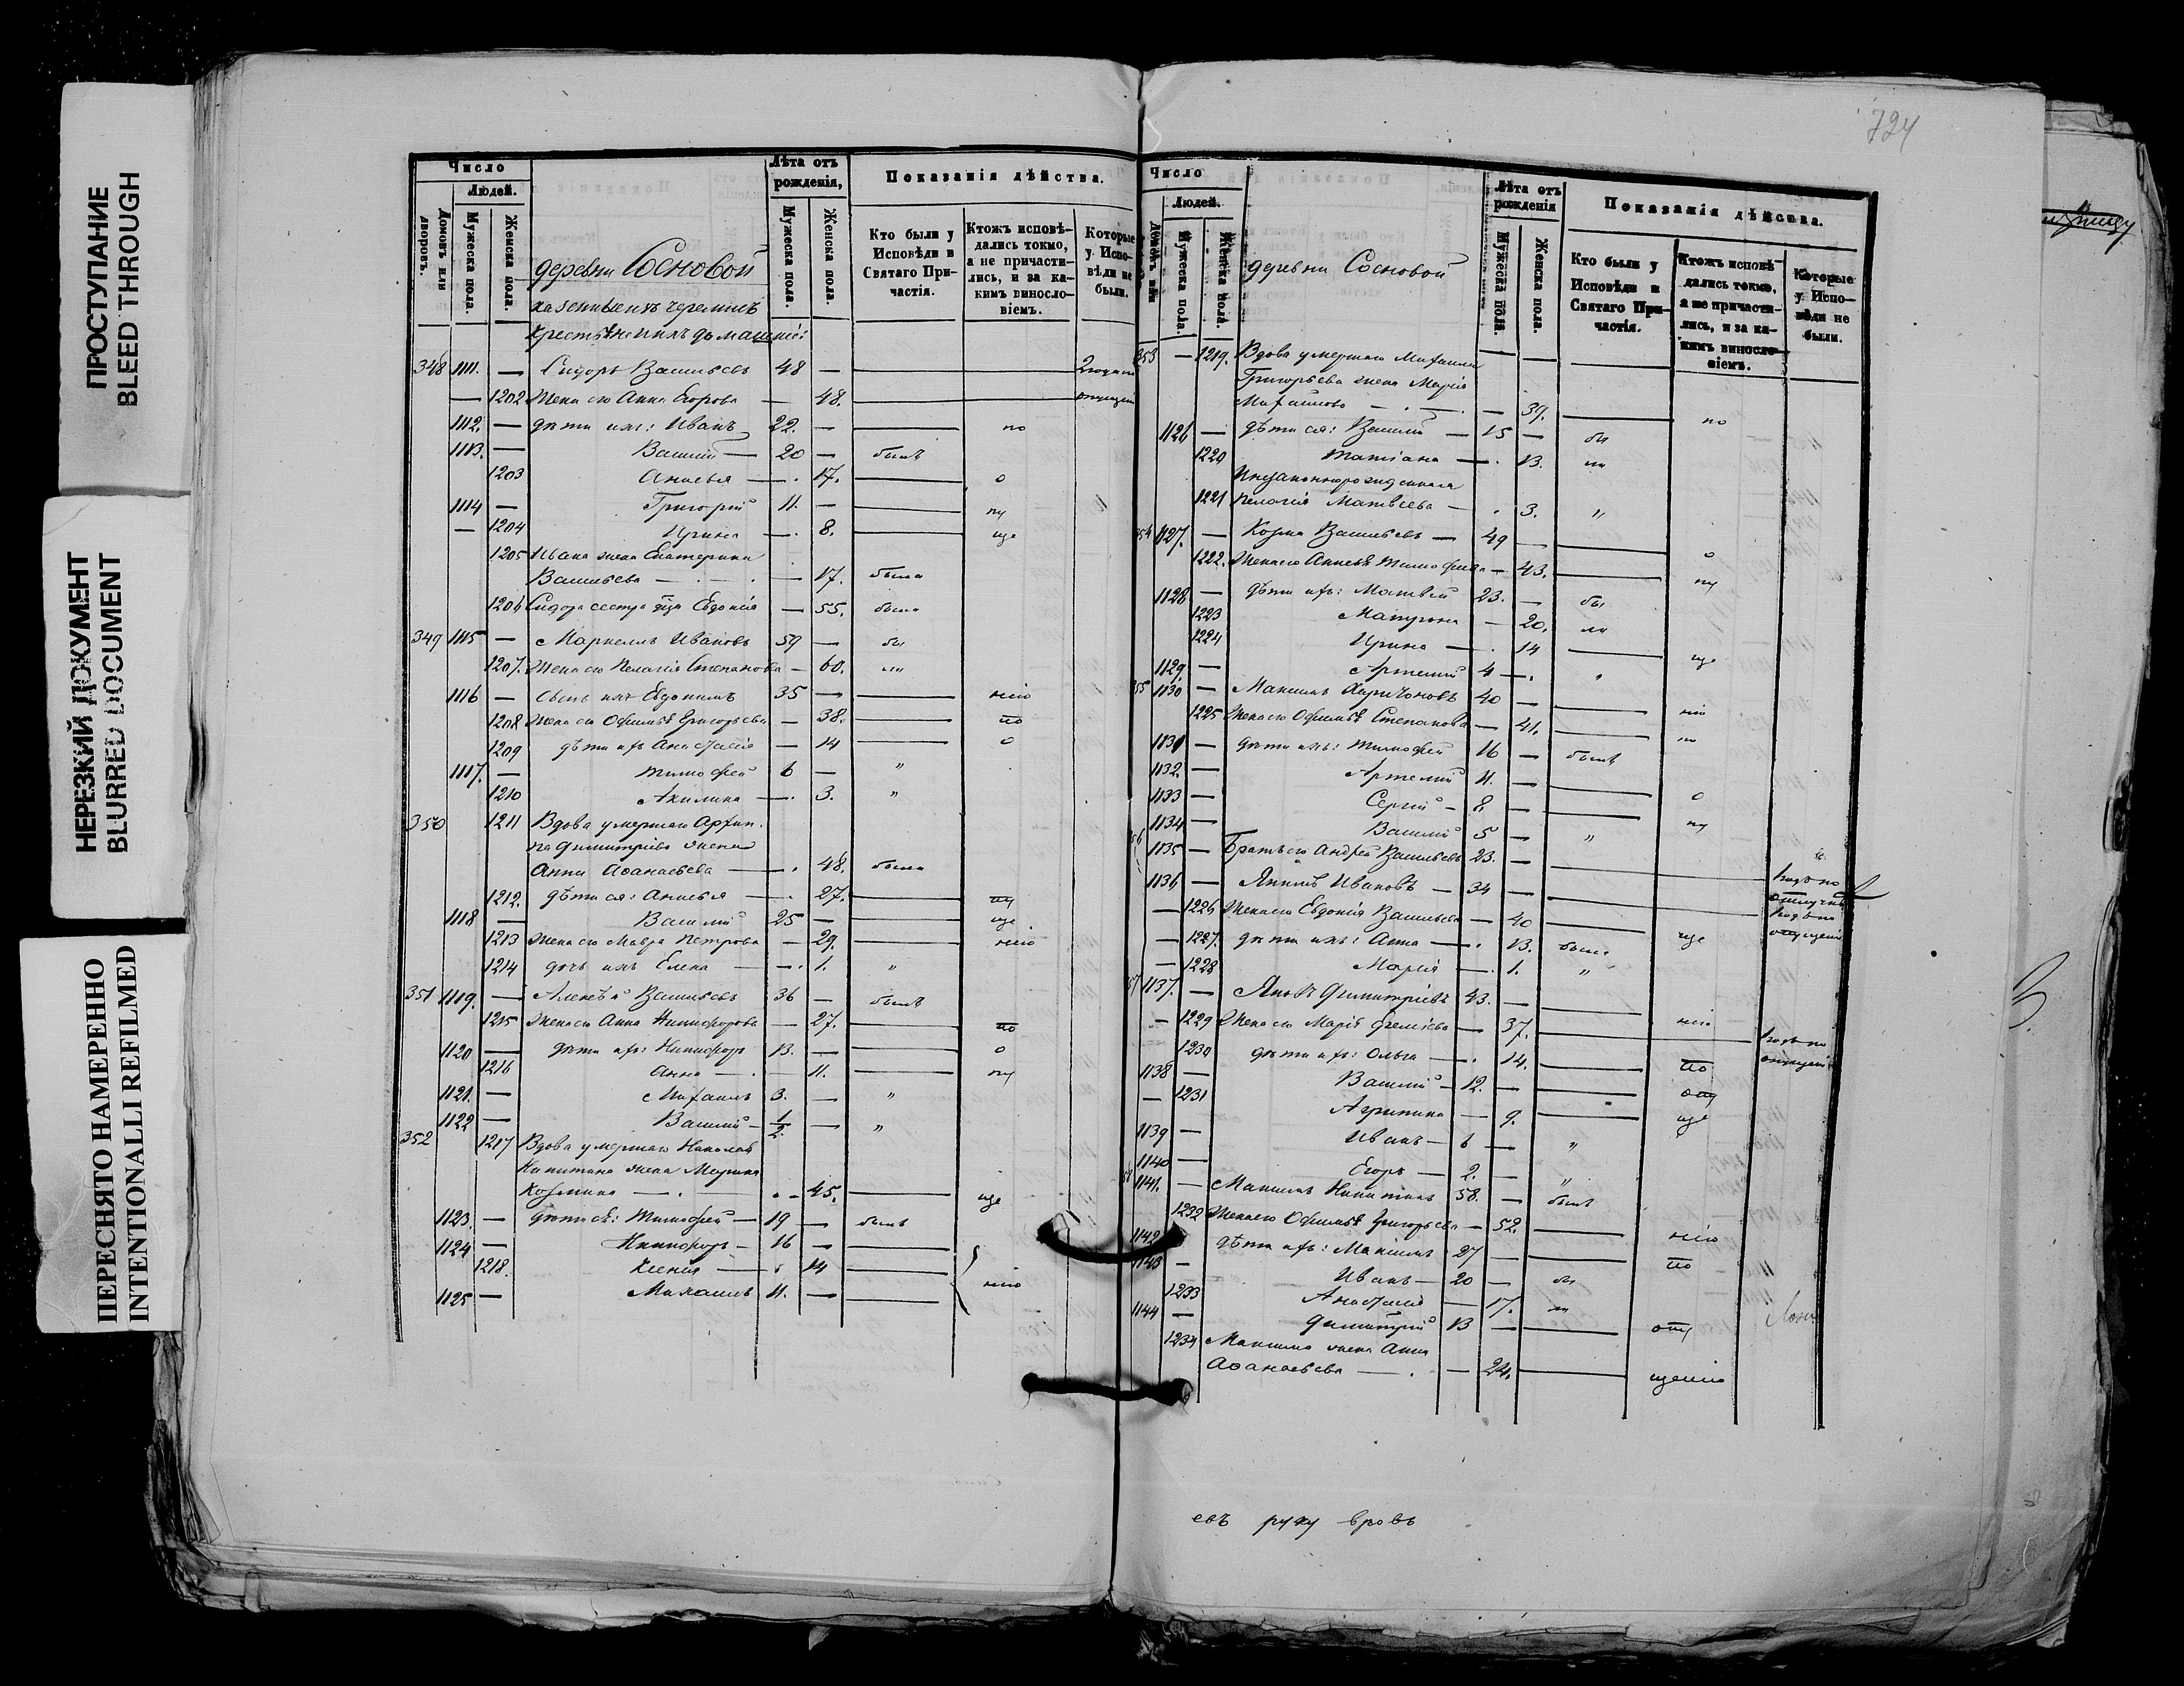 ПРОСТУПАНИЕ
BLEED THROUGH
НЕРЕЗКИЙ ДОКУМЕНТ
BLURRED DOCUMENT
ПЕРЕСНЯТО НАМЕРЕННО
INTENTIONALLI REFILMED
Число
Людей.
Домовъ или дворовъ.
Мужеска пола.
Женска пола.
Лѣта отъ рожденія,
Мужеска пола.
Женска пола.
Показанія дѣйства.
Кто были у Исповѣди и Святаго Причастія.
Ктожъ исповѣдались токмо, а не причастились, и за какимъ винословіемъ.
Которые у Исповѣди не были.
деревни Сосновой
348 1111. — Сидоръ Васильевъ 48 —
— 1202 Жена его Анна Егорова — 48.
1112. — дѣти ихъ: Иванъ 22. — по
1113. — Василій — 20 — былъ
1203 — 17. о
1114 — Григорій 11. — пу
— 1204 Ирина — 8. ще
1205 Ивана жена Екатерина
Васильева — 17. была
1206 Сидора сестра Евдокія — 55. была
349 1115 — Маркеллъ Ивановъ 59 — бы
1207. Жена его Пелагія Степанова — 60. ли
1116 — Сынъ ихъ Евдокимъ 35 — нію
1208 Жена его Офимія Григорьева — 38. по
1209 дѣти ихъ Анастасія — 14 о
1117. — Тимофей 6 — "
1210 Акилина — 3. "
350 1211 Вдова умершаго
Димитріева жена
Анна Аѳанасьева — 48. была
1212. дѣти ея: — 27. пу
1118 — Василій 25 — ще
1213 Жена его Мавра Петрова — 29. нію
1214 дочь ихъ Елена — 1. "
351 1119. — Алексѣй Васильевъ 36 — былъ
1215 Жена его Анна Никифорова — 27. по
1120 — дѣти ихъ: Никифоръ 13. — о
1216 Анна — 11. пу
1121. — Михаилъ 3. — "
1122 — Василій — 1/2. — "
352 1217 Вдова умершаго Николая
Никитина жена Марина
Козмина — 45. ще
1123. — дѣти ея: Тимофей — 19 — былъ
1124 — Никифоръ — 16 —
1218. Ксенія — 14 нію
1125 — Михаилъ 11. —
724
Число
Людей.
Мужеска пола.
Женска пола.
Лѣта отъ рожденія
Мужеска пола.
Женска пола.
Показанія дѣйства.
Кто были у Исповѣди и Святаго Причастія.
Ктожъ исповѣдались токмо, а не причастились, и за какимъ винословіемъ.
Которые у Исповѣди не были.
деревни Сосновой
353 — 1219. Вдова умершаго Михаила
Григорьева жена Марія
Михайлова — 39. по
1126 — дѣти ея: Василій — 15 — бы
1220 Татіана — 13. ли
Незаконнорожденная
1221 Пелагія Матвѣева — 3. "
354 1127. — Козма Васильевъ — 49 — о
1222. Жена его — 43. пу
1128 — дѣти ихъ: Матвей 23. — бы
1223 Матрона — 20. ли
1224 Ирина — 14 ще
1129. — Артемій 4 — "
355 1130 — Максимъ 40 — нію
1225 Жена его Офимія Степанова — 41. по
1131 — дѣти ихъ: Тимофей 16 — былъ
1132. — Артемій 11. — о
1133 — Сергій — 8. — пу
1134 — Василій 5 — "
1135 — Братъ его Андрей Васильевъ 23. —
1136 — Якимъ Ивановъ — 34 —
— 1226 Жена его Евдокія Васильева — 40 ще
— 1227. дѣти ихъ: Анна — 13. была
— 1228 Марія — 1. "
1137. — Яковъ Димитріевъ 43. — нію
— 1229 Жена его Марія — 37.
1230 дѣти ихъ: Ольга — 14. по
1138 — Василій — 12. — опу
— 1231 Агрипина — 9. ще
1139 — Иванъ — 6 — "
1140 — Егоръ — 2. — "
1141. — Максимъ Никитинъ 58. — былъ
1232 Жена его Офимія Григорьева — 52. нію
1142 дѣти ихъ: Максимъ 27 — по
1143 — Иванъ — 20 — бы
1233 Анастасія — 17. ли
1144 — Димитрій 13 — опу
1234 Максима жена Анна
Аѳанасьева — 24. щенію
евъ руку